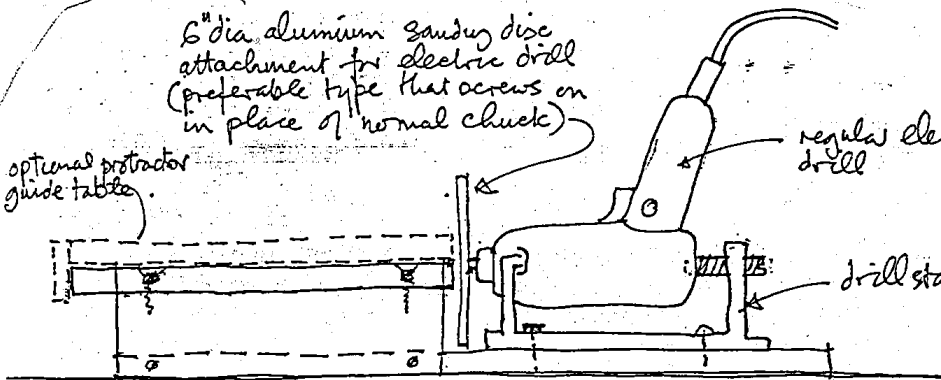 6" dia aluminium sanding disc
attachment for electric drill
(preferable type that screws on
in place of normal chuck)
optional protractor
guide table.
regular ele
drill
drill sta